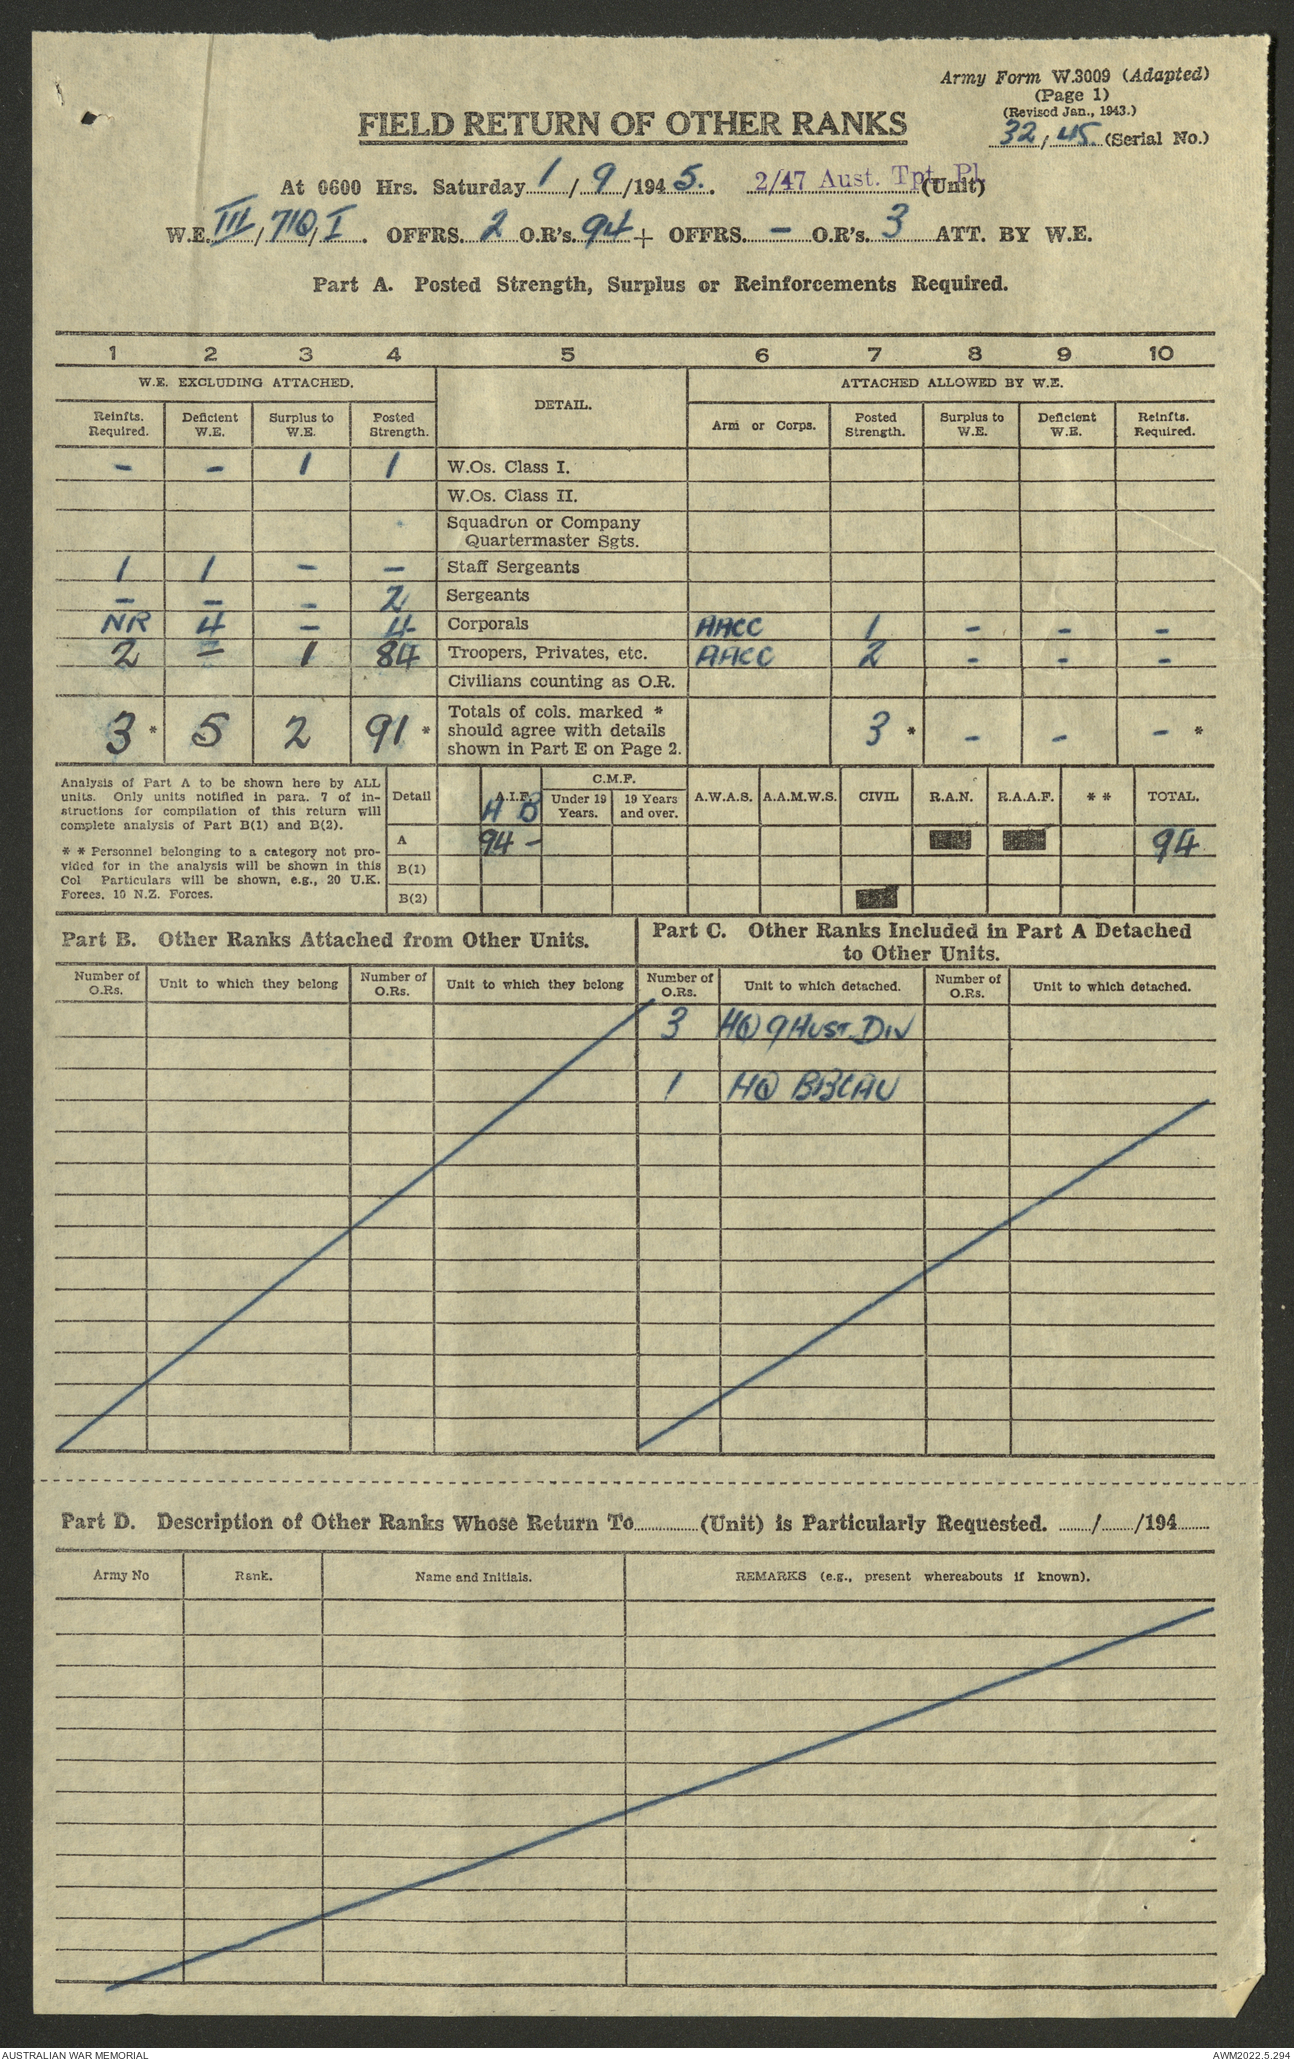 Army Form W.3009 (Adapted)
(Page 1)
(Revised Jan., 1943.)
32/45 (Serial No.)
FIELD RETURN OF OTHER RANKS
At 0600 Hrs. Saturday 1/9/1945. 2/47 Aust. Tpt. Pl (Unit)
W.E. III/71Q/I. OFFRS. 2 O.R's. 94 + OFFRS. – O.R's. 3 ATT. BY W.E.
Part A. Posted Strength, Surplus or Reinforcements Required.
1 2 3 4 5 6 7 8 9 10
W.E. EXCLUDING ATTACHED. DETAIL. ATTACHED ALLOWED BY W.E.
Reinfts. Required. Deficient W.E. Surplus to W.E. Posted Strength. Arm or Corps. Posted Strength. Surplus to W.E. Deficient W.E. Reinfts. Required.
– – 1 1 W.Os. Class I.
W.Os. Class II.
Squadron or Company
Quartermaster Sgts.
1 1 – – Staff Sergeants
– – – 2 Sergeants
NR 4 – 4 Corporals AACC 1 – – –
2 – 1 84 Troopers, Privates, etc. AACC 2 – – –
Civilians counting as O.R.
3 * 5 2 91 * Totals of cols. marked * should agree with details shown in Part E on Page 2. 3 * – – – *
Analysis of Part A to be shown here by ALL
units. Only units notified in para. 7 of in-
structions for compilation of this return will
complete analysis of Part B(1) and B(2).
* * Personnel belonging to a category not pro-
vided for in the analysis will be shown in this
Col Particulars will be shown, e.g., 20 U.K.
Forces, 10 N.Z. Forces.
Detail A.I.F. A B C.M.F. Under 19 Years. 19 Years and over. A.W.A.S. A.A.M.W.S. CIVIL R.A.N. R.A.A.F. * * TOTAL.
A 94 – 94
B(1)
B(2)
Part B. Other Ranks Attached from Other Units.
Part C. Other Ranks Included in Part A Detached
to Other Units.
Number of O.Rs. Unit to which they belong Number of O.Rs. Unit to which they belong Number of O.Rs. Unit to which detached. Number of O.Rs. Unit to which detached.
3 HQ 9 Aust Div
1 HQ BBCAU
Part D. Description of Other Ranks Whose Return To (Unit) is Particularly Requested. / /194
Army No Rank. Name and Initials. REMARKS (e.g., present whereabouts if known).
AUSTRALIAN WAR MEMORIAL AWM2022.5.294